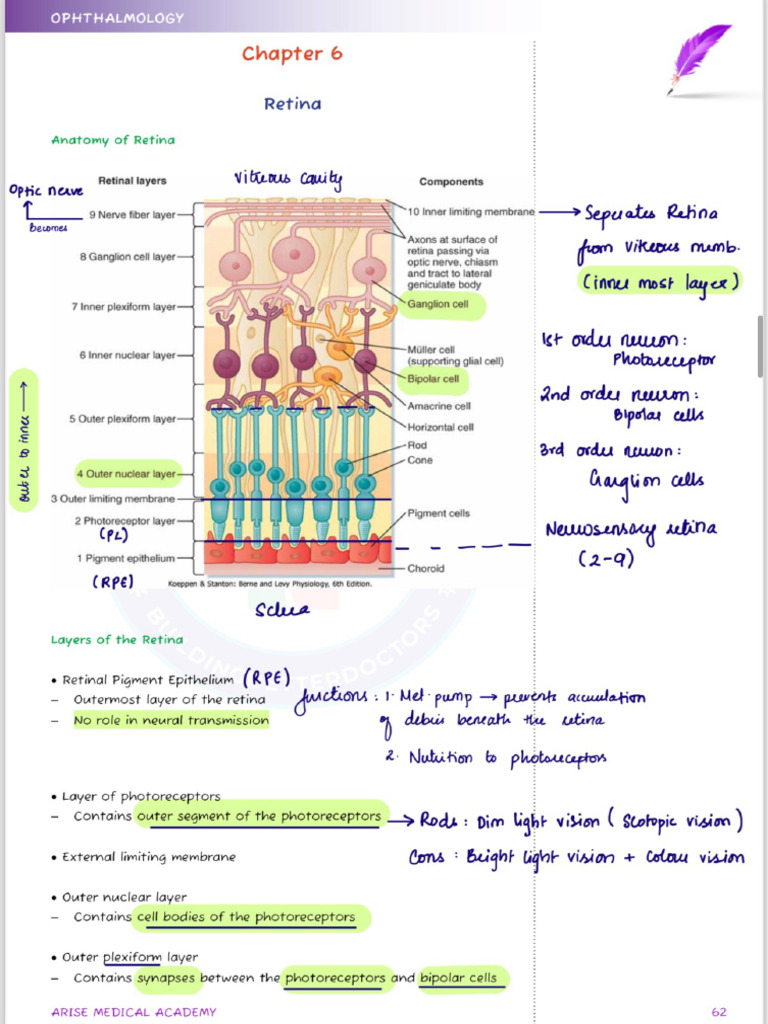 OPHTHALMOLOGY
Chapter 6
Retina
Anatomy of Retina
Retinal layers
Vitreous cavity
Components
Optic nerve
Becomes
9 Nerve fiber layer
10 Inner limiting membrane
Seperates Retina
from vitreous memb.
(inner most layer)
8 Ganglion cell layer
Axons at surface of
retina passing via
optic nerve, chiasm
and tract to lateral
geniculate body
7 Inner plexiform layer
Ganglion cell
6 Inner nuclear layer
Müller cell
(supporting glial cell)
Bipolar cell
1st order neuron:
Photoreceptor
2nd order neuron:
Bipolar cells
3rd order neuron:
Ganglion cells
Amacrine cell
5 Outer plexiform layer
Horizontal cell
outer to inner
Rod
Cone
4 Outer nuclear layer
3 Outer limiting membrane
2 Photoreceptor layer
(PL)
Pigment cells
Neurosensory retina
(2-9)
1 Pigment epithelium
(RPE)
Choroid
Koeppen & Stanton: Berne and Levy Physiology, 6th Edition.
Sclera
BUILDING
DOCTORS
Layers of the Retina
• Retinal Pigment Epithelium (RPE)
– Outermost layer of the retina
– No role in neural transmission
functions: 1. Met. pump → prevents
of debris beneath the retina
2. Nutrition to photoreceptors
• Layer of photoreceptors
– Contains outer segment of the photoreceptors → Rods : Dim light vision (Scotopic vision)
• External limiting membrane
Cons : Bright light vision + Colour vision
• Outer nuclear layer
– Contains cell bodies of the photoreceptors
• Outer plexiform layer
– Contains synapses between the photoreceptors and bipolar cells
ARISE MEDICAL ACADEMY
62